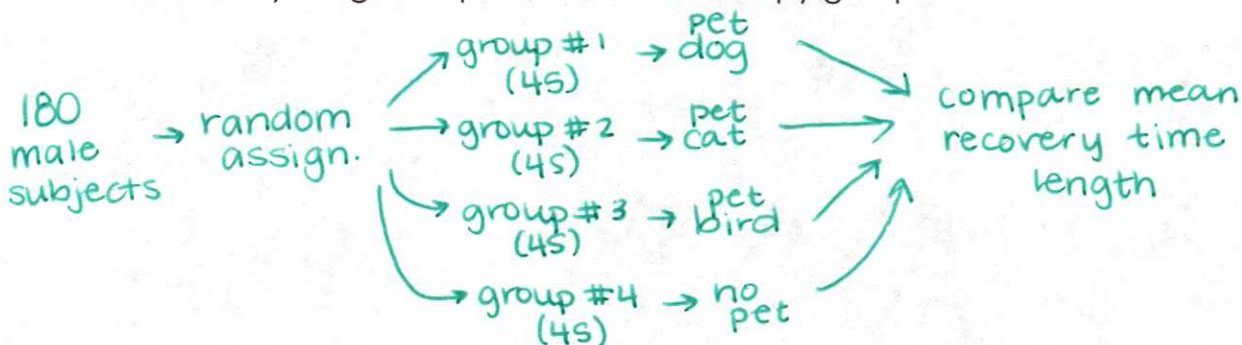 180
male
subjects
random
assign.
group #1
(45)
pet
dog
group #2
(45)
pet
cat
group #3
(45)
pet
bird
group #4
(45)
no
pet
compare mean
recovery time
length